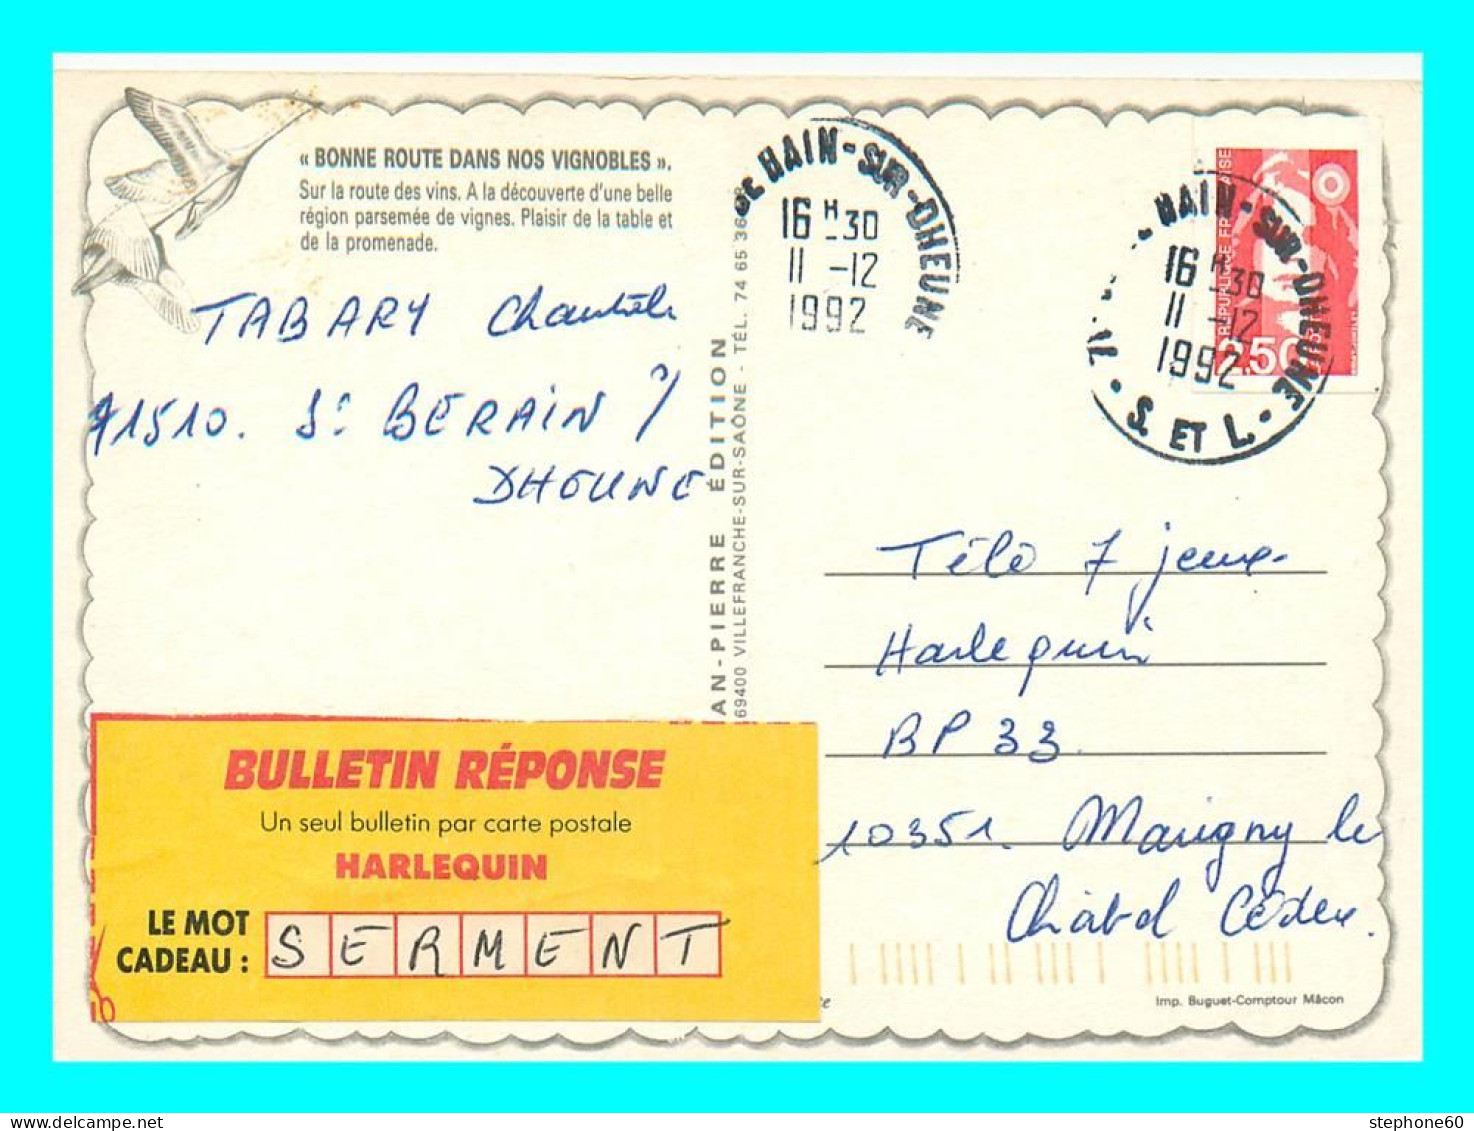 « BONNE ROUTE DANS NOS VIGNOBLES ».
Sur la route des vins. A la découverte d'une belle
région parsemée de vignes. Plaisir de la table et
de la promenade.
TABARY Chantal
71510. St BERAIN /
DHEUNE
AN-PIERRE ÉDITION
69400 VILLEFRANCHE-SUR-SAÔNE - TÉL. 74 65 36
HAIN-SUR-DHEUNE
16 H 30
11 -12
1992
HAIN-SUR-DHEUNE
16 H 30
11 -12
1992
S. ET L.
RÉPUBLIQUE FRANÇAISE
2,50
Télé 7 jeux
Harlequin
BP 33
10351. Marigny le
Châtel Cédex.
BULLETIN RÉPONSE
Un seul bulletin par carte postale
HARLEQUIN
LE MOT
CADEAU : SERMENT
Imp. Buguet-Comptour Mâcon
stephone60